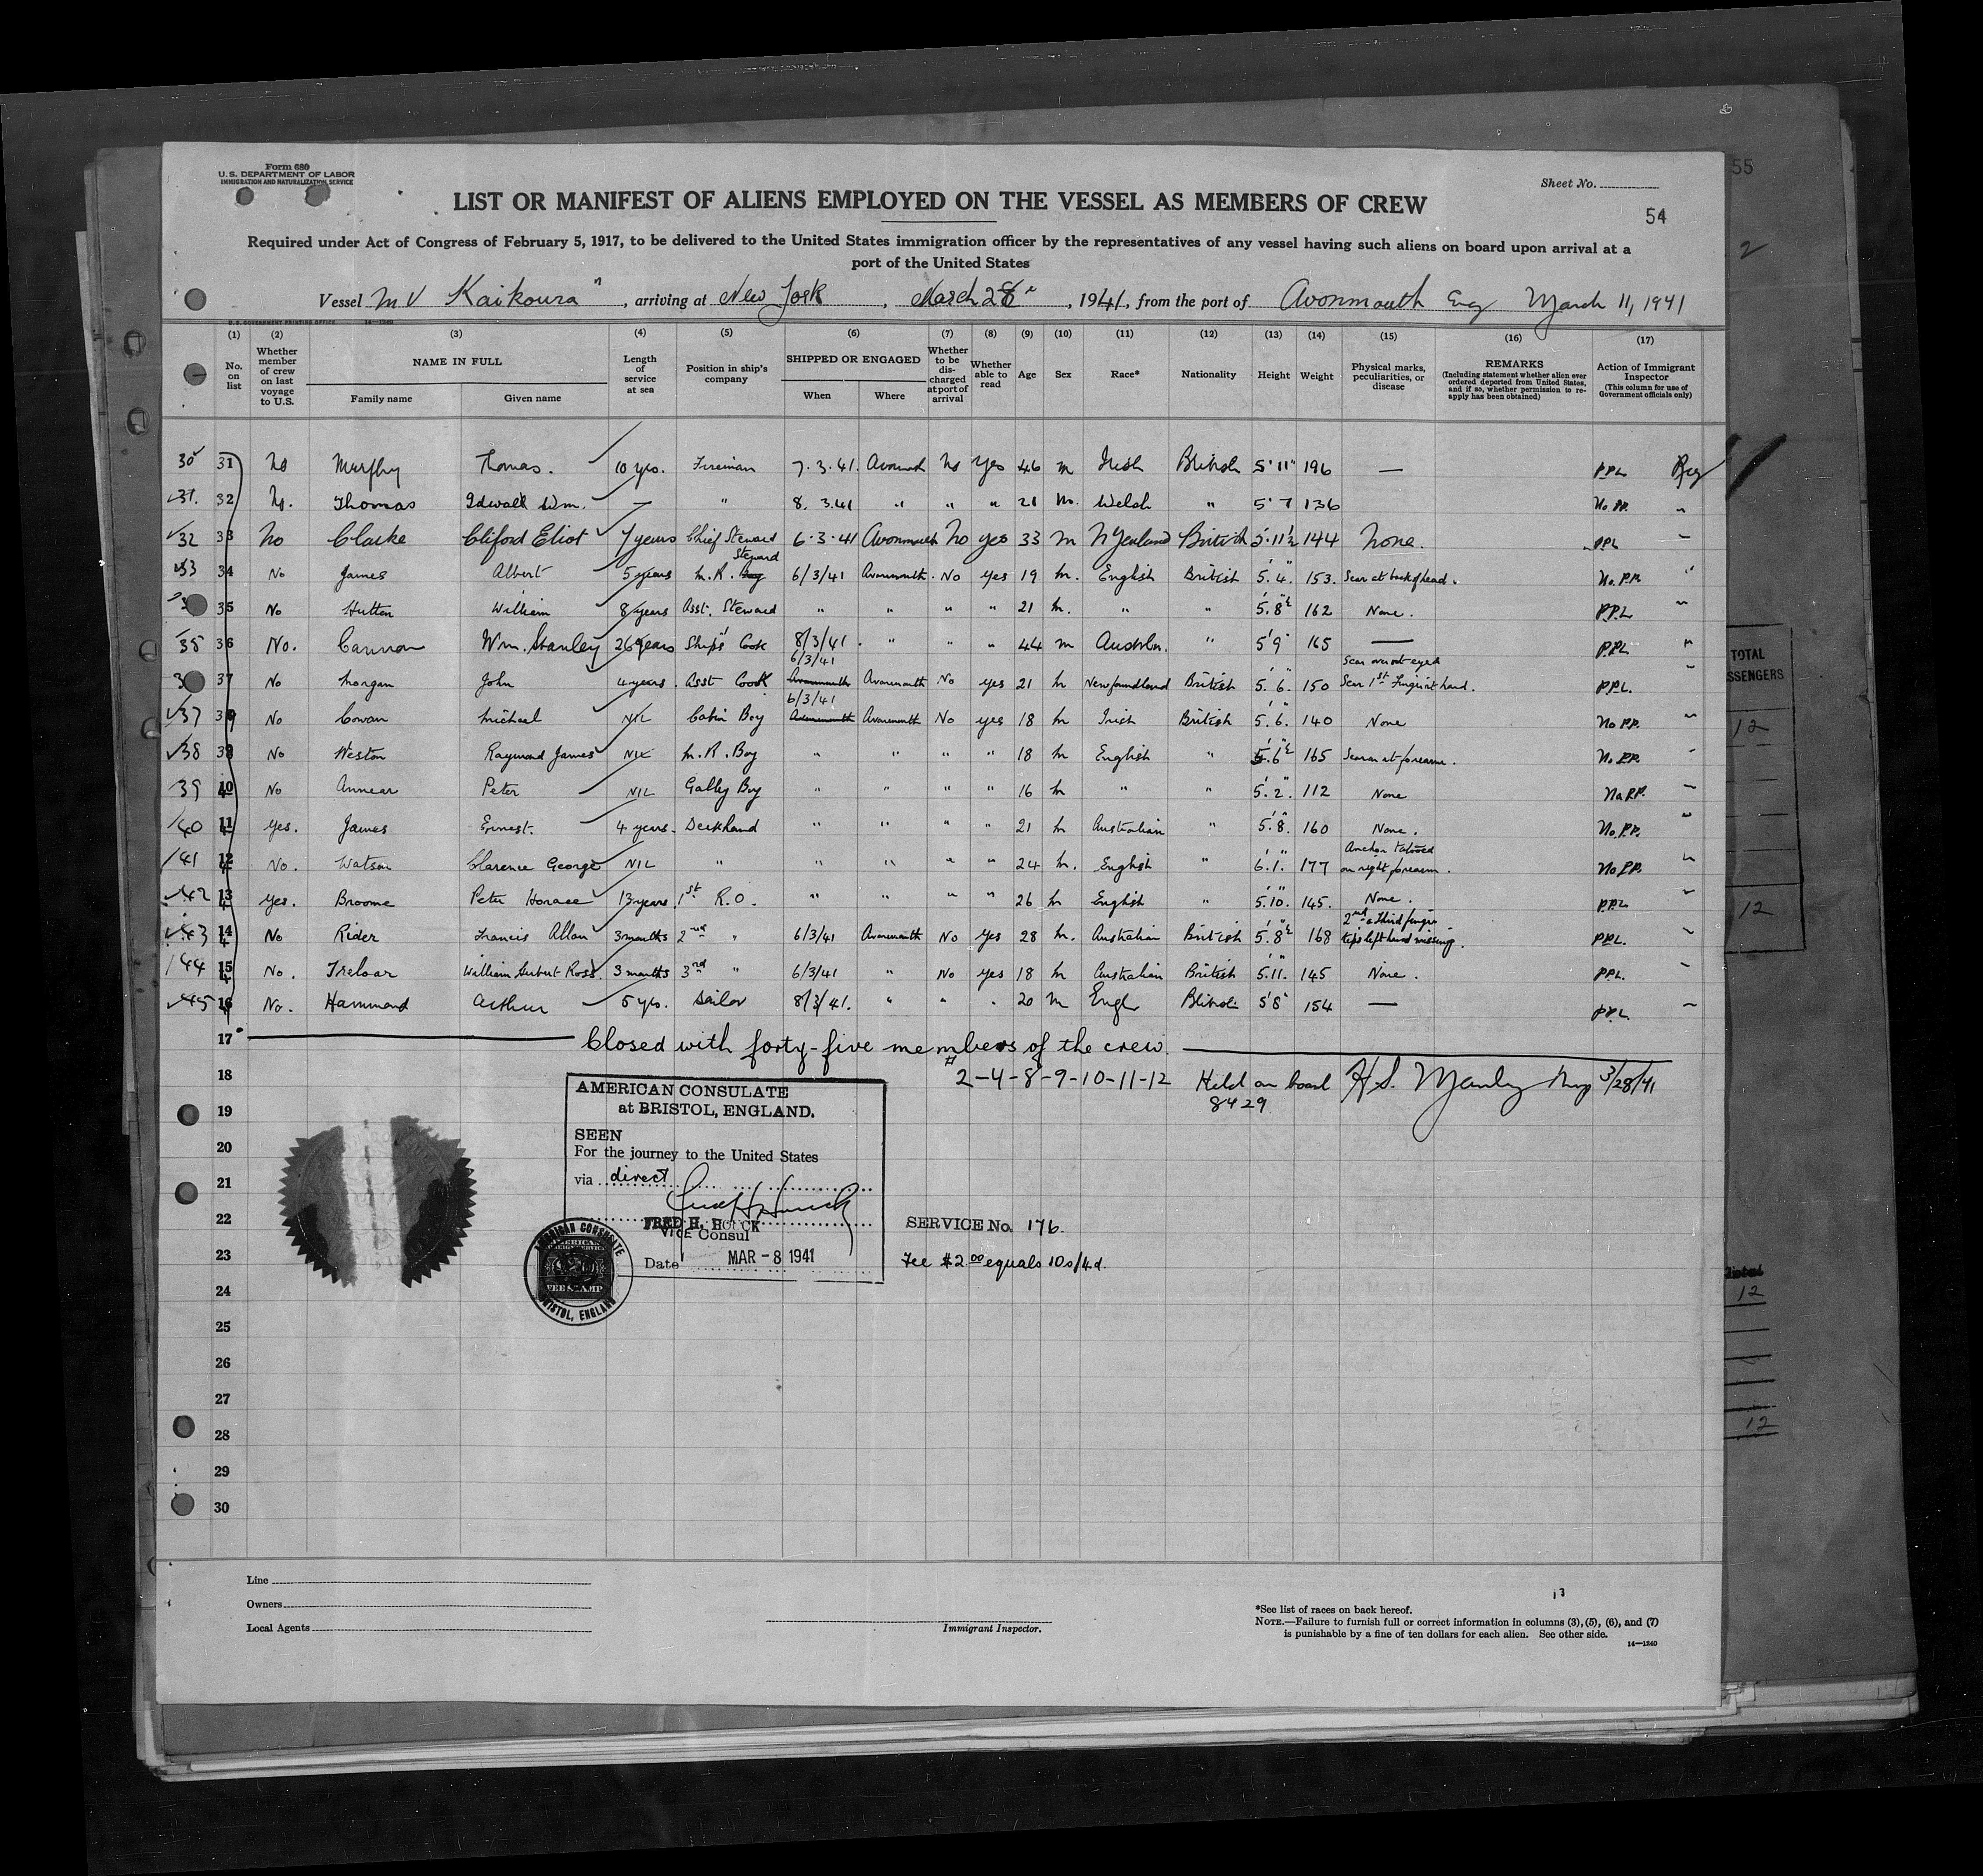 Form 680
U.S. DEPARTMENT OF LABOR
IMMIGRATION AND NATURALIZATION SERVICE
Sheet No.
54
55
LIST OR MANIFEST OF ALIENS EMPLOYED ON THE VESSEL AS MEMBERS OF CREW
Required under Act of Congress of February 5, 1917, to be delivered to the United States immigration officer by the representatives of any vessel having such aliens on board upon arrival at a
port of the United States
2
Vessel M V Kaikoura ", arriving at New York, March 28, 1941, from the port of Avonmouth Eng March 11, 1941
U. S. GOVERNMENT PRINTING OFFICE 14—1240
(1) (2) (3) (4) (5) (6) (7) (8) (9) (10) (11) (12) (13) (14) (15) (16) (17)
No. on list
Whether member of crew on last voyage to U.S.
NAME IN FULL
Family name Given name
Length of service at sea
Position in ship's company
SHIPPED OR ENGAGED
When Where
Whether to be discharged at port of arrival
Whether able to read
Age Sex Race* Nationality Height Weight
Physical marks, peculiarities, or disease
REMARKS
(Including statement whether alien ever ordered deported from United States, and if so, whether permission to re-apply has been obtained)
Action of Immigrant Inspector
(This column for use of Government officials only)
30 31 No Murphy Thomas. 10 yrs. Fireman 7.3.41. Avonmouth No Yes 46 m Irish British 5' 11" 196 — PPL
31. 32 No. Thomas Idwall Wm. — " 8.3.41 " " " 21 m. Welch " 5' 7 136 No PP. "
32 33 No Clarke Cliford Eliot 7 years Chief Steward 6.3.41 Avonmouth No yes 33 m N Zealand British 5' 11½ 144 None. PPL "
33 34 No James Albert 5 years M.R. Boy Steward 6/3/41 Avonmouth. No yes 19 M. English British 5' 4" 153. Scar at back of head. No. P.P. "
35 No Hutton William 8 years Asst. Steward " " " " 21 M. " " 5' 8"½ 162 None. P.P.L "
35 36 No. Cannon Wm. Stanley 26 years Ship's Cook 8/3/41 " " " 44 m Austrln. " 5' 9" 165 — P.P.L "
37 No Morgan John 4 years. Asst Cook 6/3/41 Avonmouth Avonmouth No yes 21 M Newfoundland British 5' 6" 150 PPL. "
37 38 No Cowan Michael NIL Cabin Boy 6/3/41 Avonmouth Avonmouth No yes 18 M Irish British 5' 6" 140 None No P.P. "
38 39 No Weston Raymond James NIL M.R. Boy " " " " 18 M English " 5' 6"½ 165 No P.P. "
39 40 No Annear Peter NIL Galley Boy " " " " 16 M " " 5' 2" 112 None No P.P. "
40 41 Yes. James Ernest. 4 years. Deckhand " " " " 21 M Australian " 5' 8" 160 None. No P.P. "
41 42 No. Watson Clarence George NIL " " " " " 24 M. English " 6' 1" 177 Anchor tatooed on right forearm. No P.P. "
42 43 Yes. Broome Peter Horace 13 years 1st R.O. " " " " 26 M English " 5' 10" 145. None. P.P.L "
43 44 No Rider Francis Allan 3 months 2nd " 6/3/41 Avonmouth No yes 28 M. Australian British 5' 8"½ 168 2nd & third finger tips left hand missing. PPL. "
44 45 No. Treloar William Hubert Ross. 3 months 3rd " 6/3/41 " No yes 18 M Australian British 5' 11" 145 None. PPL. "
45 46 No. Hammond Arthur 5 yrs. Sailor 8/3/41. " " " 20 m Engl British 5' 8" 154 — PPL "
17 Closed with forty-five members of the crew.
18 # 2-4-8-9-10-11-12 Held on board H.S. Manly Insp 3/28/41
8429
19
20
21
22
23
24
25
26
27
28
29
30
AMERICAN CONSULATE
at BRISTOL, ENGLAND.
SEEN
For the journey to the United States
via direct
FRED H. HOUCK
Vice Consul
Date MAR - 8 1941
AMERICAN CONSULATE
AMERICAN FOREIGN SERVICE
FEE STAMP
BRISTOL, ENGLAND
SERVICE No. 176.
Fee $2.00 equals 10s/4d.
TOTAL
PASSENGERS
12
12
Total
12
12
Line
Owners
Local Agents
Immigrant Inspector.
13
*See list of races on back hereof.
NOTE.—Failure to furnish full or correct information in columns (3), (5), (6), and (7)
is punishable by a fine of ten dollars for each alien. See other side.
14—1240